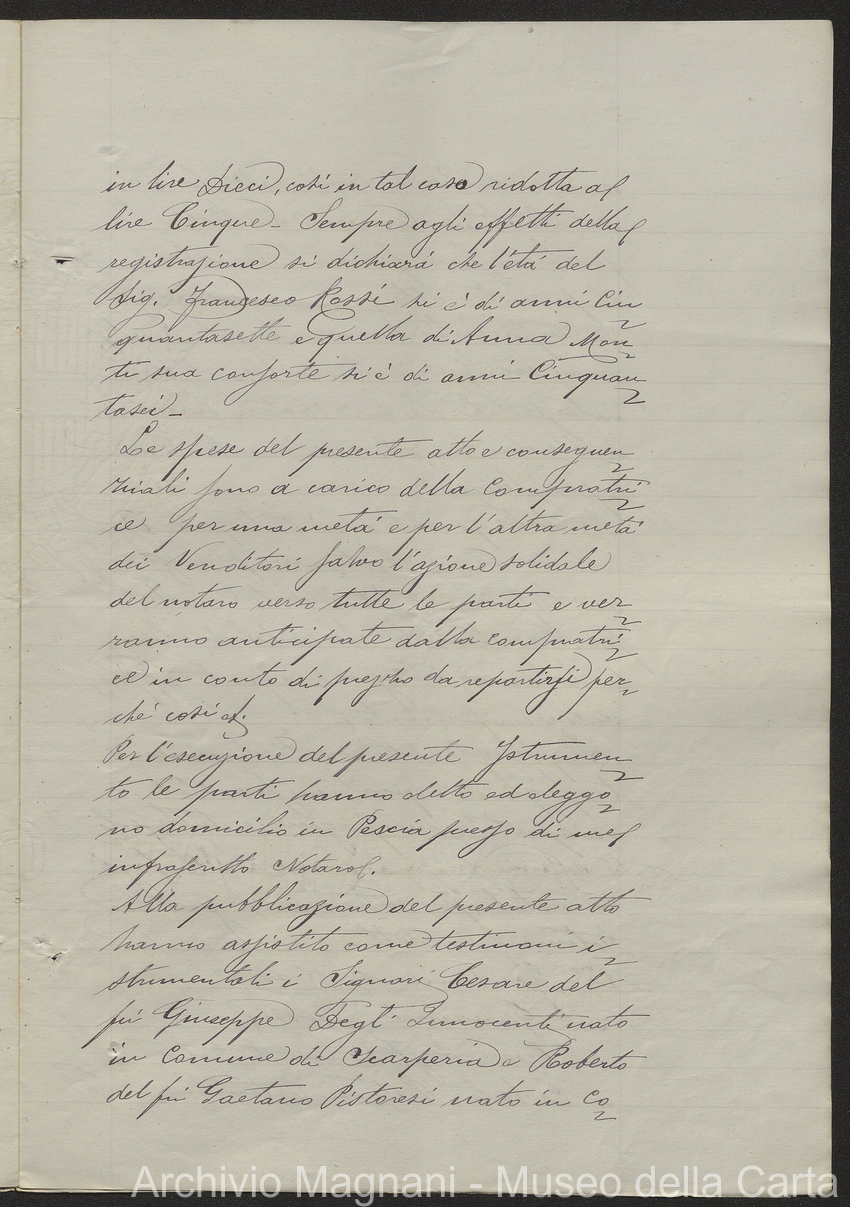 in lire Dieci, così in tal caso ridotta a
lire Cinque - Sempre agli effetti della
registrazione si dichiara che l'età del
Sig. Francesco Rossi si è di anni Cin
quantasette e quella di Anna Mon
ti sua consorte si è di anni Cinquan
tasei -
Le spese del presente atto e conseguen
ziali sono a carico della Compratri
ce per una metà e per l'altra metà
dei Venditori salvo l'azione solidale
del notaro verso tutte le parti e ver
ranno anticipate dalla compratri
ce in conto di prezzo da repartirsi per
chè così
Per l'esecuzione del presente Istrumen
to le parti hanno detto ed eleggo
no domicilio in Pescia presso di me
infrascritto Notaro.
Alla pubblicazione del presente atto
hanno assistito come testimoni i
strumentali i Signori Cesare del
fù Giuseppe Degl'Innocenti nato
in Comune di Scarperia e Roberto
del fù Gaetano Pistoresi nato in Co
Archivio Magnani - Museo della Carta